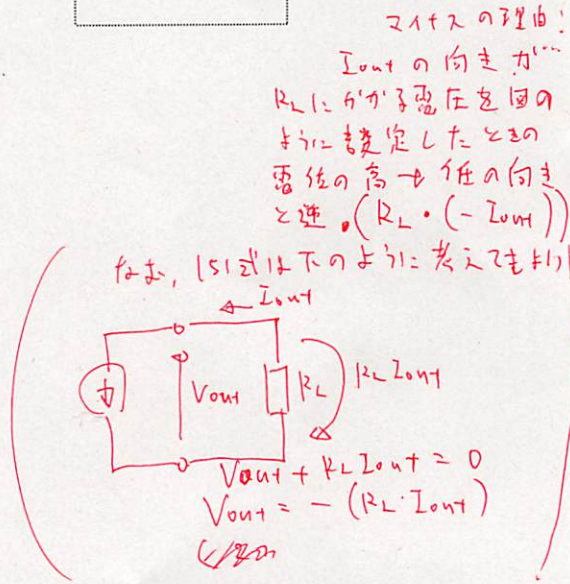 マイナスの理由:
Ioutの向きが…
RLにかかる電圧を図の
ように設定したときの
電位の高→低の向き
と逆.(RL・(-Iout))
なお,(5)式は下のように考えてもよい
Iout
Vout RL RL Iout
Vout + RL Iout = 0
Vout = - (RL・Iout)